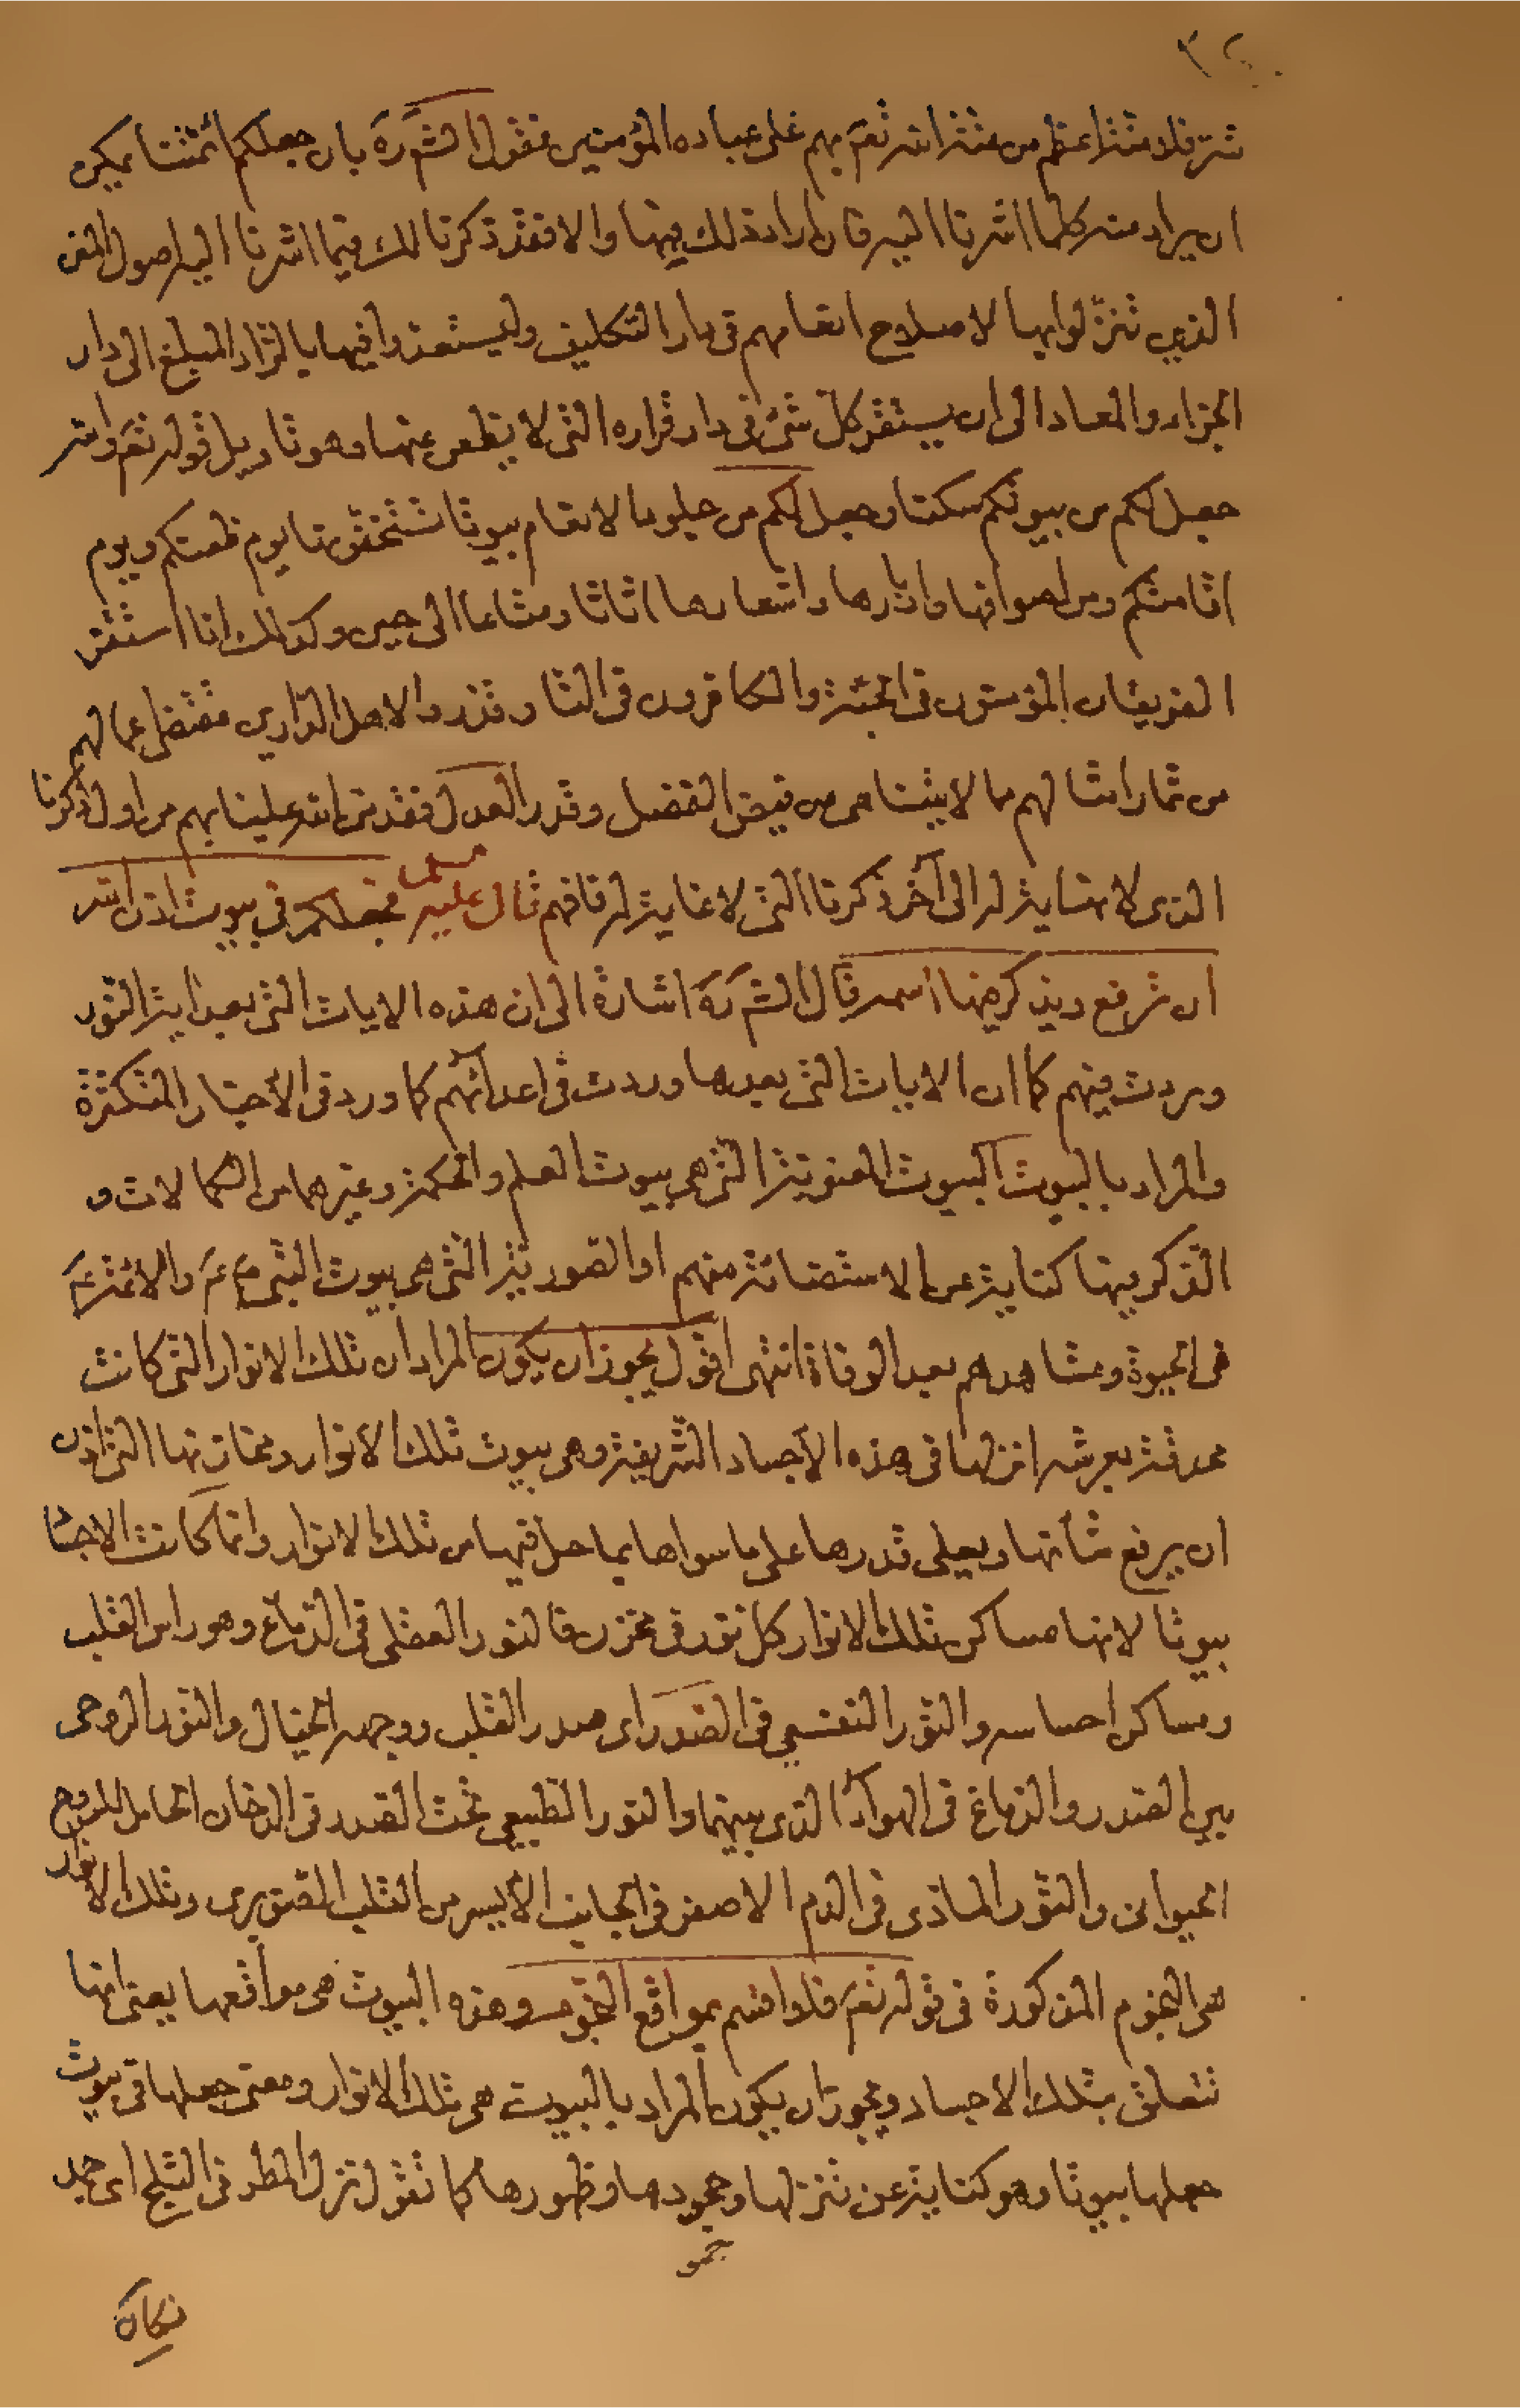 ٣٢٠
شرّ فلا منة اعظم من منة الله تعَ بهم على عباده المؤمنين فقول الشرَ رَهَ بان جعلكم ائمتنا يمكن
ان يراد منه كلما اشرنا اليه فان اراد ذلك فيها والا فقد ذكرنا لك فيما اشرنا اليه اصول المنن
الذين تنزّلوا بها لاصلاح انعامهم في دار التكليف وليستعدّوا فيها بالزّاد المبلغ الى دار
الجزاء والمعاد الى ان يستقر كلّ شئ في دار قراره التي لا يظعن عنها وهو تاويل قوله تعَ والله
جعل لكم من بيوتكم سكنا وجعل لكم من جلود الانعام بيوتا تستخفونها يوم ظعنكم ويوم
اقامتكم ومن اصوافها واوبارها واشعارها اثاثا ومتاعا الى حين وكذلك اذا استقر
الفريقان المؤمنون في الجنّة والكافرون في النار وقدروا لاهل الدّارين مقتضى اعمالهم
من ثمار امثالهم ما لا يتناهى من فيض الفضل وقدر العدل فقد منّ الله علينا بهم من اول ذكرنا
الذي لا نهاية له الى آخر ذكرنا الّتي لا غاية له فافهم قال عليه السلم فجعلكم في بيوت اذن الله
ان ترفع ويذكر فيها اسمه قال الشرَ رَهَ اشارة الى ان هذه الايات التي بعد اية النّور
وردت فيهم كما ان الايات التي بعدها وردت في اعدائهم كما ورد في الأخبار المتكثرة
والمراد بالبيوت البيوت المعنوية التي هي بيوت العلم والحكمة وغيرهما من الكمالات و
الذكر فيها كناية عن الاستضائة منهم او الصّورية الّتي هي بيوت النّبي صَ عَ والائمّة عَ
في الحيوة ومشاهدهم بعد الوفاة انتهى اقول يجوز ان يكون المراد ان تلك الانوار التي كانت
محدقة بعرشه انزلها في هذه الأجساد الشّريفة وهي بيوت تلك الأنوار ومخازنها التي اذن
ان يرفع شأنها ويعلى قدرها على ما سواها بما حلّ فيها من تلك الانوار وانّما كانت الاجساد
بيوتا لانها مساكن تلك الانوار كل نور في مخزن فالنور العقلي في الدّماغ وهو راس القلب
ومساكن احساسه والنّور النفسي في الصّدر اى صدر القلب ووجهه الخيال والنّور الروحى
بين الصّدر والدّماغ في الهواء الذي بينهما والنّور الطبيعي تحت الصّدر في الدخان الحامل للروح
الحيوانى والنّور المادّى في الدم الاصفر في الجانب الأيسر من القلب الصّنوبرى وتلك الانوار
هي النجوم المذكورة في قوله تعَ فلا اقسم بمواقع النّجوم وهذه البيوت هي مواقعها يعنى انها
تتعلق بتلك الاجساد ويجوز ان يكون المراد بالبيوت هي تلك الانوار ومعنى جعلها في بيوت
جعلها بيوتا وهو كناية عن تنزلها وجمودها وظهورها كما تقول نزل المطر في الثلج اى جمد
جمو
فكان